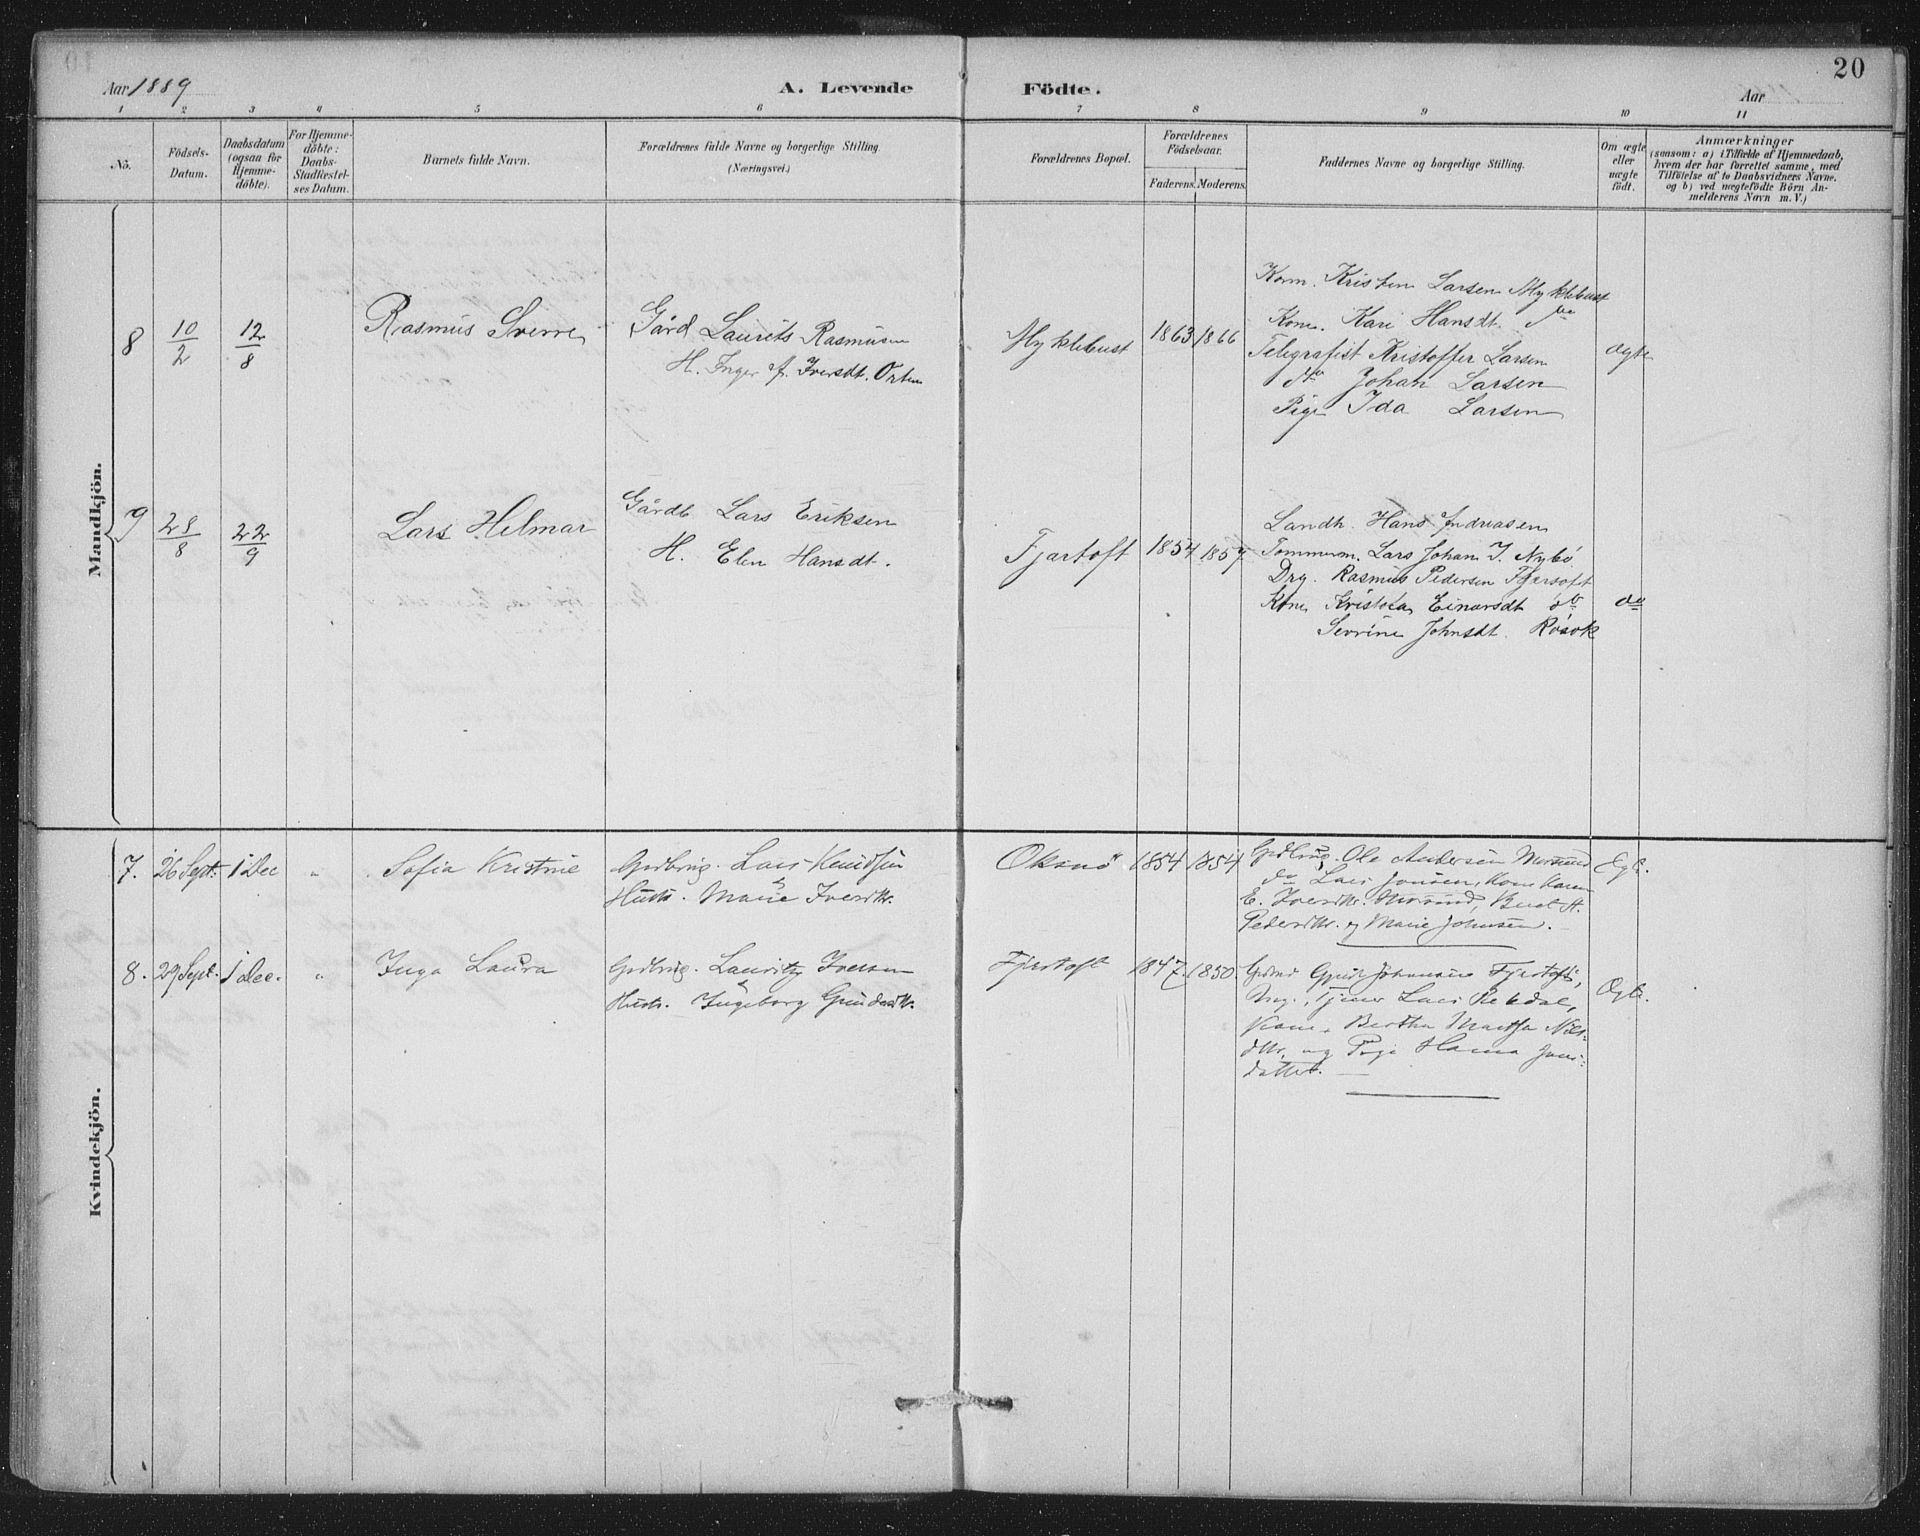 20
Aar 1889
A. Levende Födte.
Aar
1 2 3 4 5 6 7 8 9 10 11
No.
Födsels-
Datum.
Daabsdatum
(ogsaa for
Hjemme-
döbte).
For Hjemme-
döbte:
Daabs-
Stadfæstel-
ses Datum.
Barnets fulde Navn.
Forældrenes fulde Navne og borgerlige Stilling.
(Næringsvei.)
Forældrenes Bopæl.
Forældrenes
Födselsaar.
Faderens. Moderens.
Faddernes Navne og borgerlige Stilling.
Om ægte
eller
uægte
födt.
Anmærkninger
(saasom: a) i Tilfælde af Hjemmedaab,
hvem der har forrettet samme, med
Tilföielse af to Daabsvidners Navne,
og b) ved uægtefödte Börn An-
melderens Navn m. V.)
Mandkjön.
8 10/2 12/8 Rasmus Sverre
Gård Laurits Rasmusen
H. Inger Iversdt. Orten
Myklebust 1863 1866
Korm. Kristen Larsen Myklebust
Kone. Kari Hansdt. do
Telegrafist Kristoffer Larsen
do Johan Larsen
Pige Ida Larsen
ægte
9 28/8 22/9 Lars Helmar
Gårdb Lars Eriksen
H. Elen Hansdt.
Fjærtoft 1854 1857
Landh. Hans Andreasen
Tømmerm. Lars Johan I. Nybö
Drg. Rasmus Pedersen Fjærtoft
Kone Kristoia Einarsdt do
Sevrine Johnsdt. Rösok
do
Kvindekjön.
7. 26 Sept. 1 Dec " Sofia Kristine
Grdbrug. Lars Knudsen
Hustr. Marie Iversdtr.
Oksnö 1854 1854
Grdbrug. Ole Andersen
do Lars Jonsen, Kone Karen
E. Iversdtr. Beret A.
Pedersdtr. og Marie Johnsen.
Egte.
8. 29 Sept. 1 Dec. " Inga Laura
Grdbrug. Lauritz Iversen
Hustr. Ingeborg Gundersdtr.
Fjærtoft 1847. 1850.
Johnsen Fjærtoft,
Ung. Tjener Lars Rekdal,
Kone Bertha Martha Nils-
dtr. og Pige Hanna Jons-
datter.
Ægte.